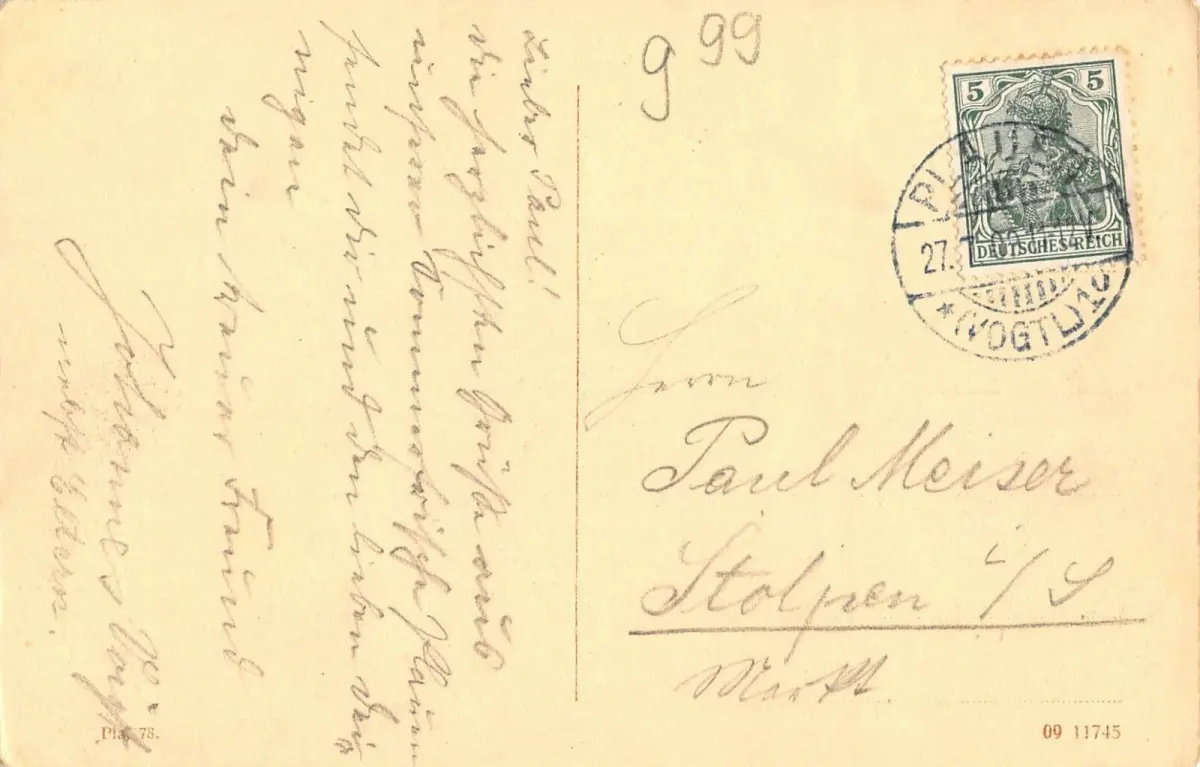 Lieber Paul!
Die herzlichsten Grüße aus
unserer Sommerfrische Plauen
sendet dir und den lieben Dei
nigen
dein treuer Freund
Johannes Voigt
nebst Eltern.
999
5 5
DEUTSCHES REICH
PLAUEN
27.
*(VOGTL.)1
Herrn
Paul Meiser
Stolpen i/S.
Markt
78.
09 11745